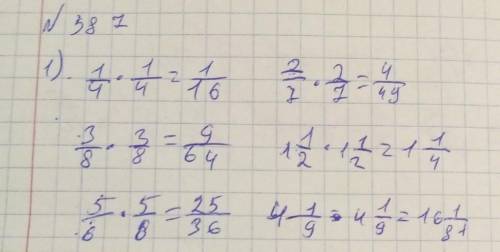 № 387
1) 1/4 · 1/4 = 1/16   2/7 · 2/7 = 4/49
3/8 · 3/8 = 9/64   1 1/2 · 1 1/2 = 1 1/4
5/6 · 5/6 = 25/36   4 1/9 · 4 1/9 = 16 1/81